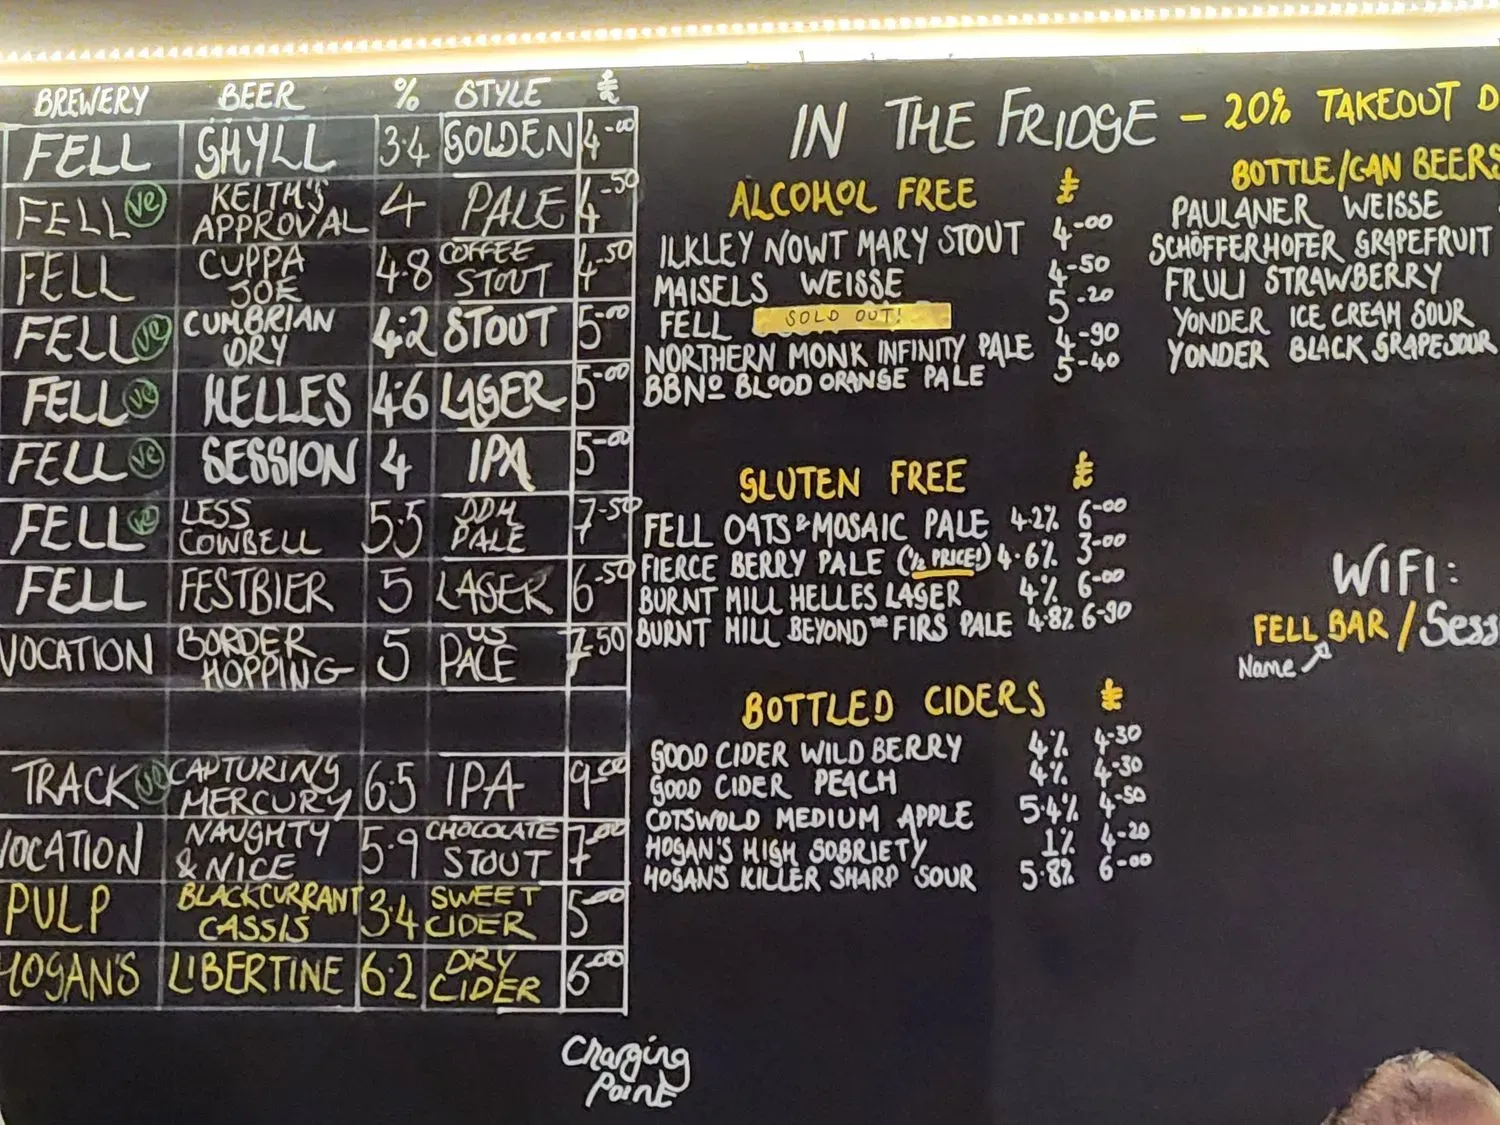 BREWERY BEER % STYLE £
FELL GHYLL 3.4 GOLDEN 4-00
FELL ve KEITH'S APPROVAL 4 PALE 4-50
FELL CUPPA JOE 4.8 COFFEE STOUT 4-50
FELL ve CUMBRIAN DRY 4.2 STOUT 5-00
FELL ve HELLES 4.6 LAGER 5-00
FELL ve SESSION 4 IPA 5-00
FELL ve LESS COWBELL 5.5 DDH PALE 7-50
FELL FESTBIER 5 LAGER 6-50
VOCATION BORDER HOPPING 5 US PALE 7-50
TRACK ve CAPTURING MERCURY 6.5 IPA 9-00
VOCATION NAUGHTY & NICE 5.9 CHOCOLATE STOUT 7-00
PULP BLACKCURRANT CASSIS 3.4 SWEET CIDER 5-00
HOGAN'S LIBERTINE 6.2 DRY CIDER 6-00
Charging Point
IN THE FRIDGE - 20% TAKEOUT D
ALCOHOL FREE £
ILKLEY NOWT MARY STOUT 4-00
MAISELS WEISSE 4-50
FELL SOLD OUT! 5-20
NORTHERN MONK INFINITY PALE 4-90
BBNO BLOOD ORANGE PALE 5-40
GLUTEN FREE £
FELL OATS & MOSAIC PALE 4.2% 6-00
FIERCE BERRY PALE (1/2 PRICE!) 4.6% 3-00
BURNT MILL HELLES LAGER 4% 6-00
BURNT MILL BEYOND THE FIRS PALE 4.8% 6-90
BOTTLED CIDERS £
GOOD CIDER WILD BERRY 4% 4-30
GOOD CIDER PEACH 4% 4-30
COTSWOLD MEDIUM APPLE 5.4% 4-50
HOGAN'S HIGH SOBRIETY 1% 4-20
HOGAN'S KILLER SHARP SOUR 5.8% 6-00
BOTTLE/CAN BEERS
PAULANER WEISSE
SCHÖFFERHOFER GRAPEFRUIT
FRULI STRAWBERRY
YONDER ICE CREAM SOUR
YONDER BLACK GRAPE SOUR
WIFI:
FELL BAR / Sess
Name